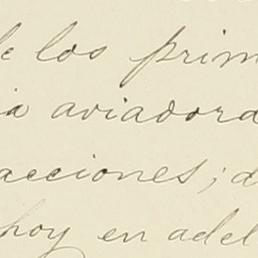 de los prim
ia aviadora
acciones; d
hoy en adel